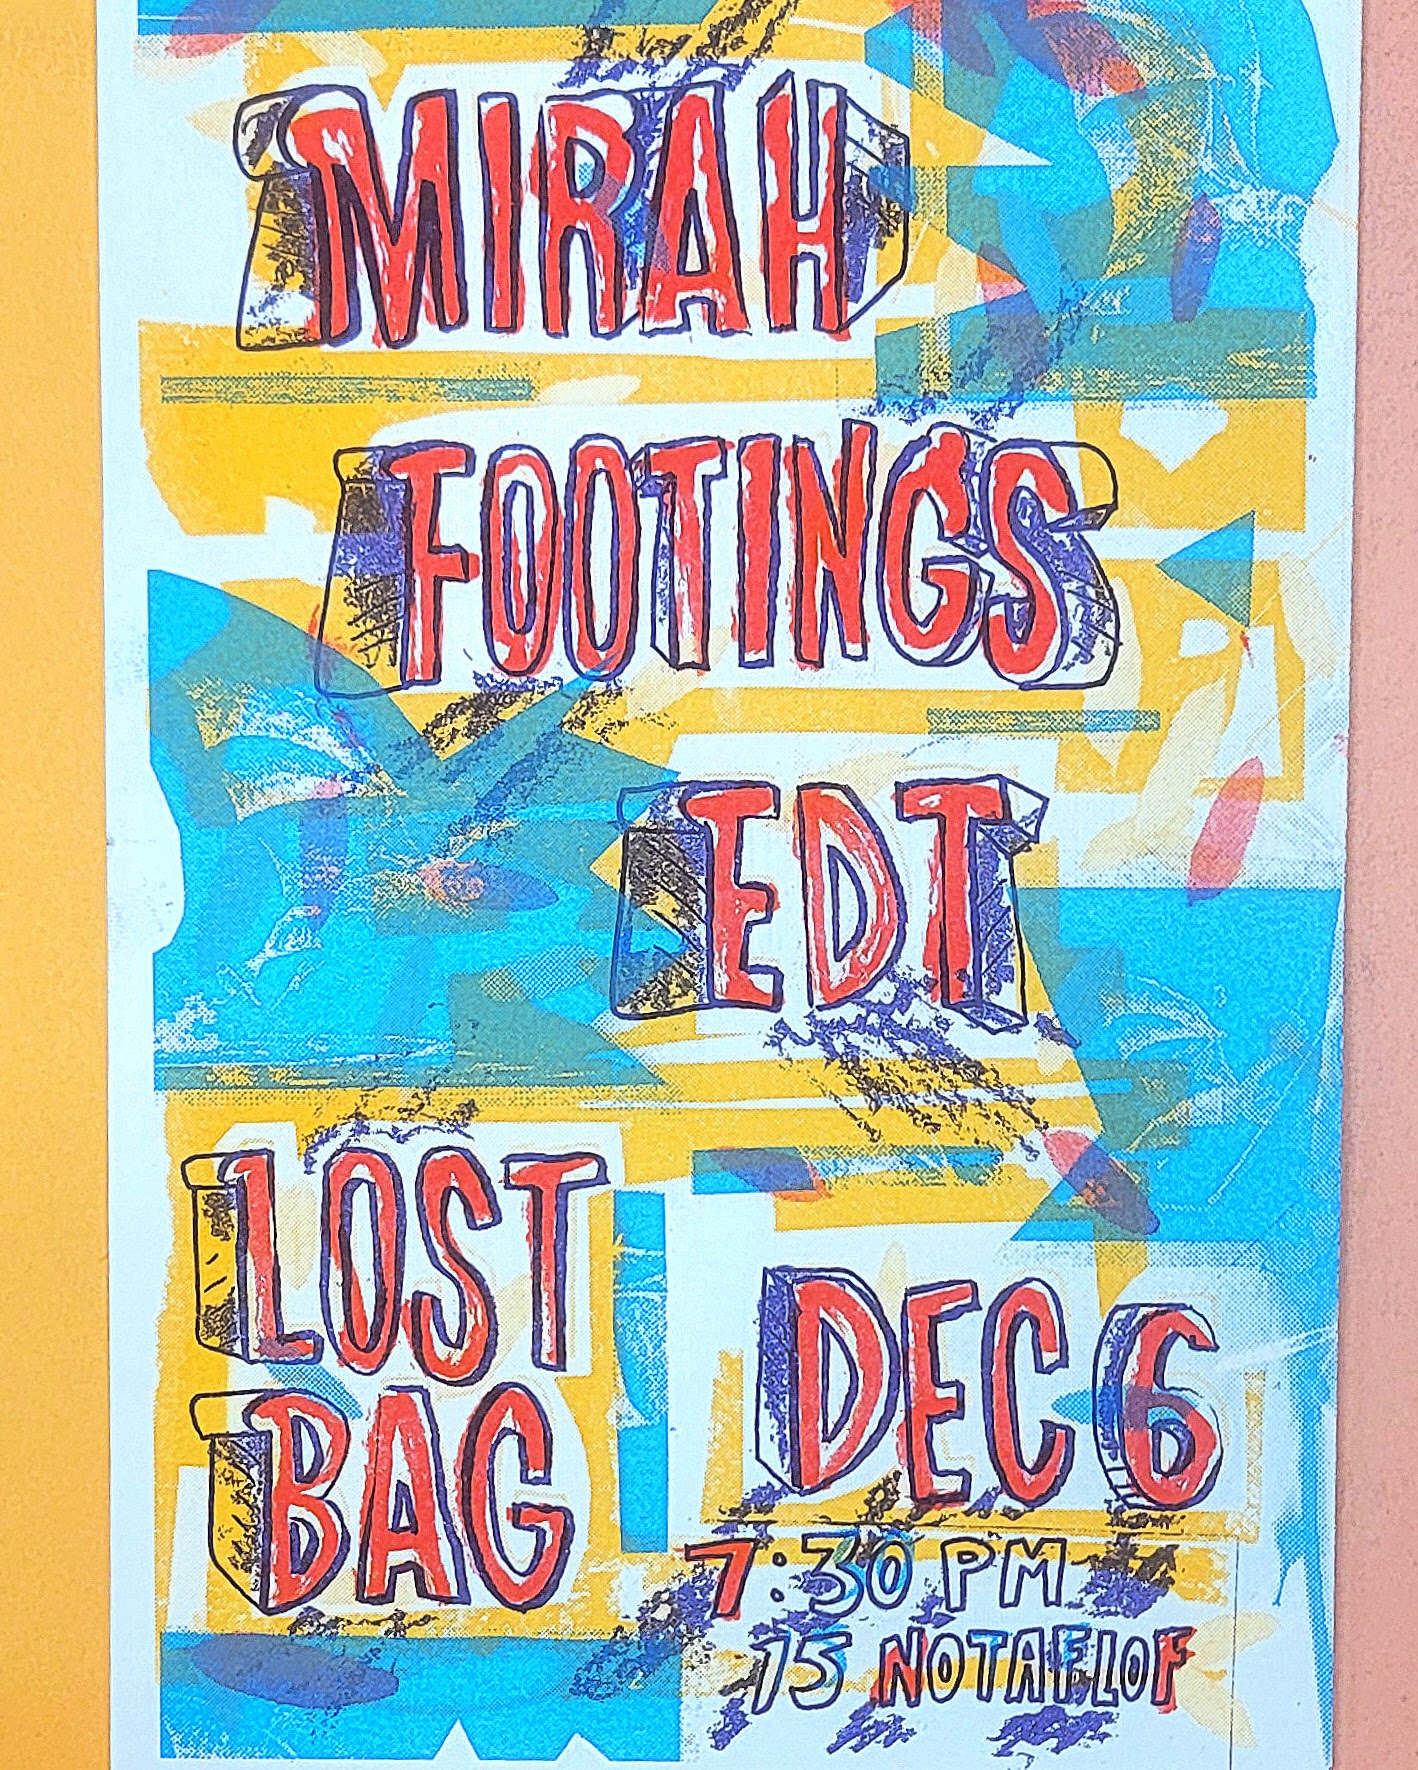 MIRAH
FOOTINGS
EDT
LOST
BAG
DEC 6
7:30 PM
15 NOTAFLOF